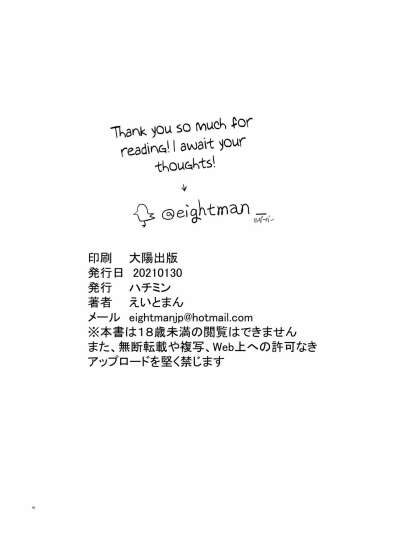 Thank you so much for
reading! I await your
thoughts!
@eightman_
印刷 大陽出版
発行日 20210130
発行 ハチミン
著者 えいとまん
メール eightmanjp@hotmail.com
※本書は18歳未満の閲覧はできません
また、無断転載や複写、Web上への許可なき
アップロードを堅く禁じます